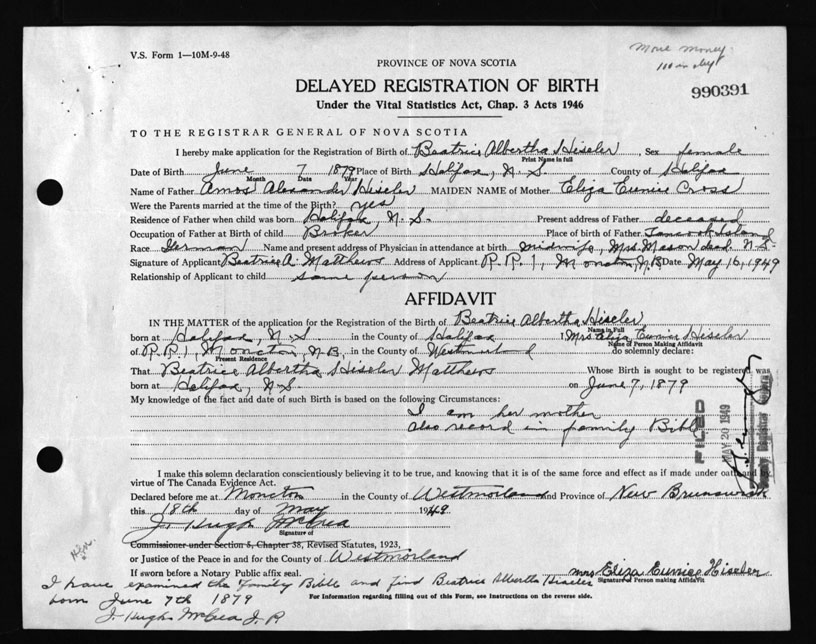 V.S. Form 1—10M-9-48
More money
PROVINCE OF NOVA SCOTIA
DELAYED REGISTRATION OF BIRTH
990391
Under the Vital Statistics Act, Chap. 3 Acts 1946
TO THE REGISTRAR GENERAL OF NOVA SCOTIA
I hereby make application for the Registration of Birth of Beatrice Albertha Hiseler, Sex female
Print Name in full
Date of Birth June 7 1879 Place of Birth Halifax, N.S. County of Halifax
Month Date Year
Name of Father Amos Alexander Hiseler MAIDEN NAME of Mother Eliza Eunice Cross
Were the Parents married at the time of the Birth? yes
Residence of Father when child was born Halifax N.S. Present address of Father deceased
Occupation of Father at Birth of child Broker Place of birth of Father Tancook Island
Race German Name and present address of Physician in attendance at birth midwife, Mrs. Mason dead. N.S.
Signature of Applicant Beatrice A. Matthews Address of Applicant R.R.1, Moncton, N.B. Date May 16, 1949
Relationship of Applicant to child same person
AFFIDAVIT
IN THE MATTER of the application for the Registration of the Birth of Beatrice Albertha Hiseler
Name in Full
born at Halifax, N.S. in the County of Halifax I Mrs Eliza Eunice Hiseler
Name of Person Making Affidavit
of R.R.1, Moncton, N.B. in the County of Westmorland do solemnly declare:
Present Residence
That Beatrice Albertha Hiseler Matthews Whose Birth is sought to be registered was
born at Halifax, N.S. on June 7, 1879
My knowledge of the fact and date of such Birth is based on the following Circumstances:
I am her mother
also record in family Bible
FILED
MAY 20 1949
I make this solemn declaration conscientiously believing it to be true, and knowing that it is of the same force and effect as if made under oath and by
virtue of The Canada Evidence Act.
Declared before me at Moncton in the County of Westmorland and Province of New Brunswick
this 18th day of May 1949
J. Hugh McCrea
Signature of
Commissioner under Section 5, Chapter 38, Revised Statutes, 1923,
or Justice of the Peace in and for the County of Westmorland
If sworn before a Notary Public affix seal. Mrs Eliza Eunice Hiseler
Signature of Person making Affidavit
I have examined the Family Bible and find Beatrice Albertha Hiseler
born June 7th 1879
For Information regarding filling out of this Form, see Instructions on the reverse side.
J. Hugh McCrea J.P.